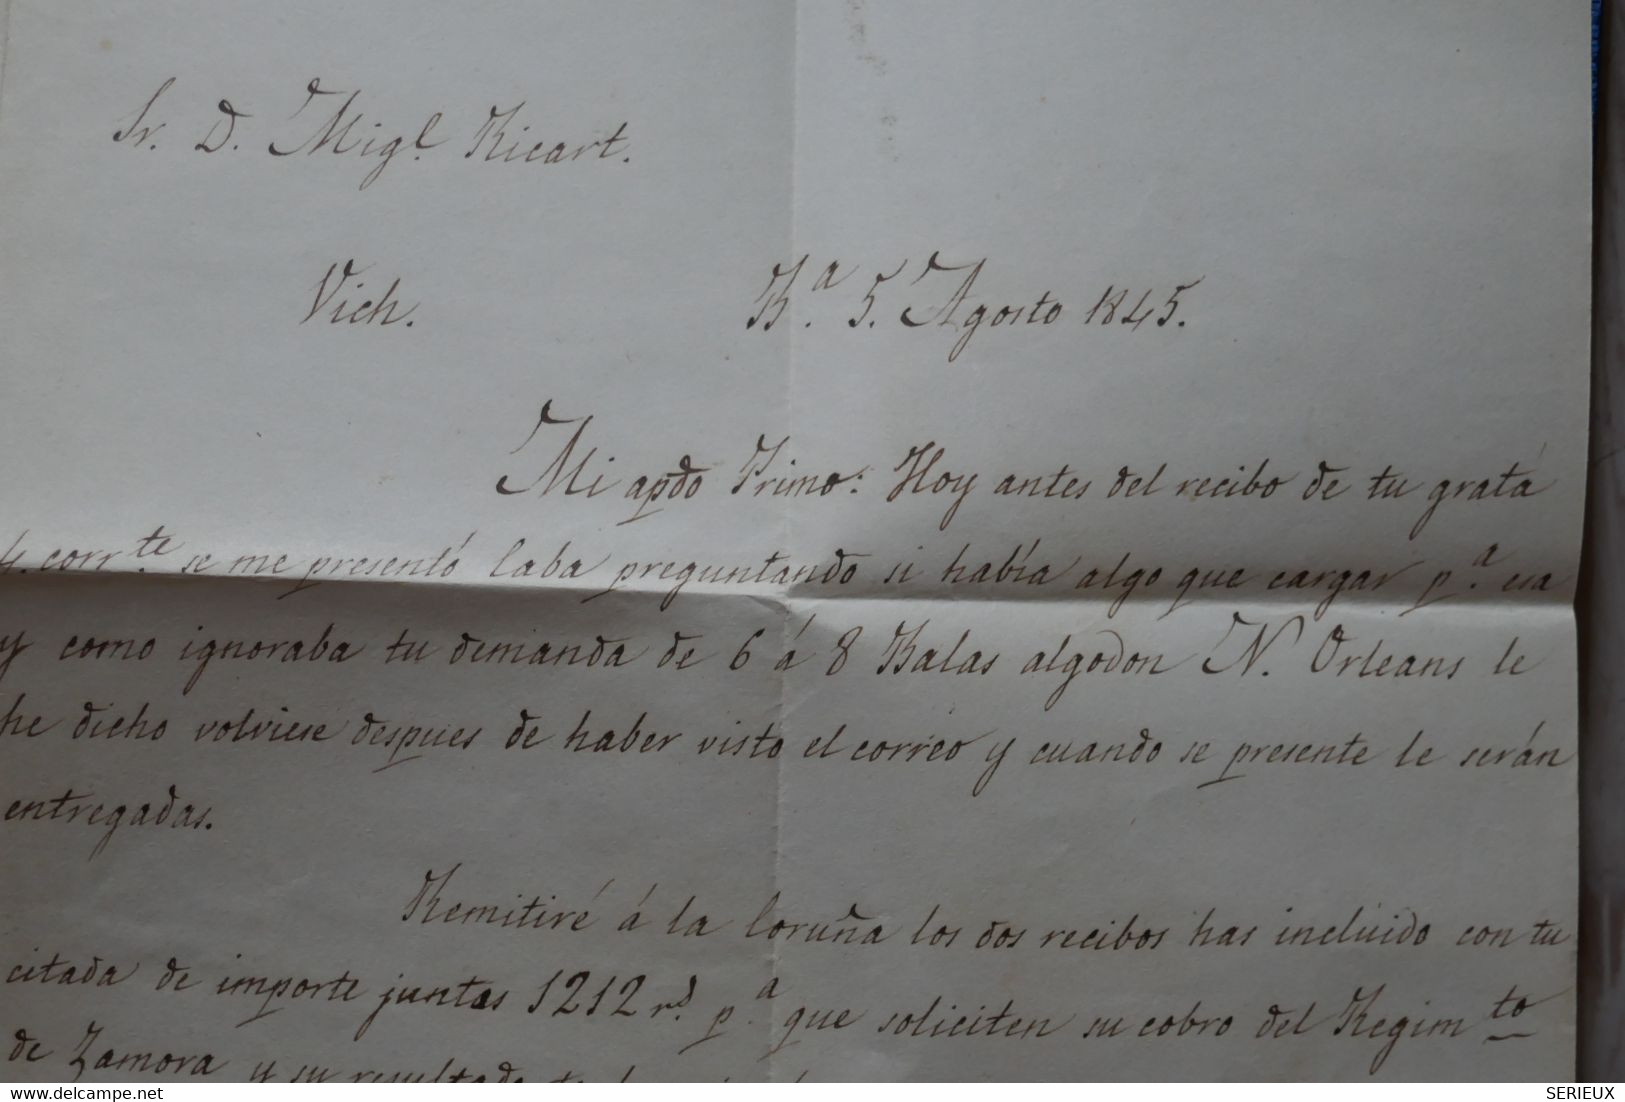 Sr. D. Migl. Ricart.
Vich. Ba. 5. Agosto 1845.
Mi apdo Primo: Hoy antes del recibo de tu grata
4. corrte. se me presentó Caba preguntando si había algo que cargar pa. esa
y como ignoraba tu demanda de 6 á 8 Balas algodon N. Orleans le
he dicho volviese despues de haber visto el correo y cuando se presente le serán
entregadas.
Remitiré á la Coruña los dos recibos has incluido con tu
citada de importe juntos 1212 rs. pa. que soliciten su cobro del Regimto
de Zamora y su resultado
SERIEUX
www.delcampe.net